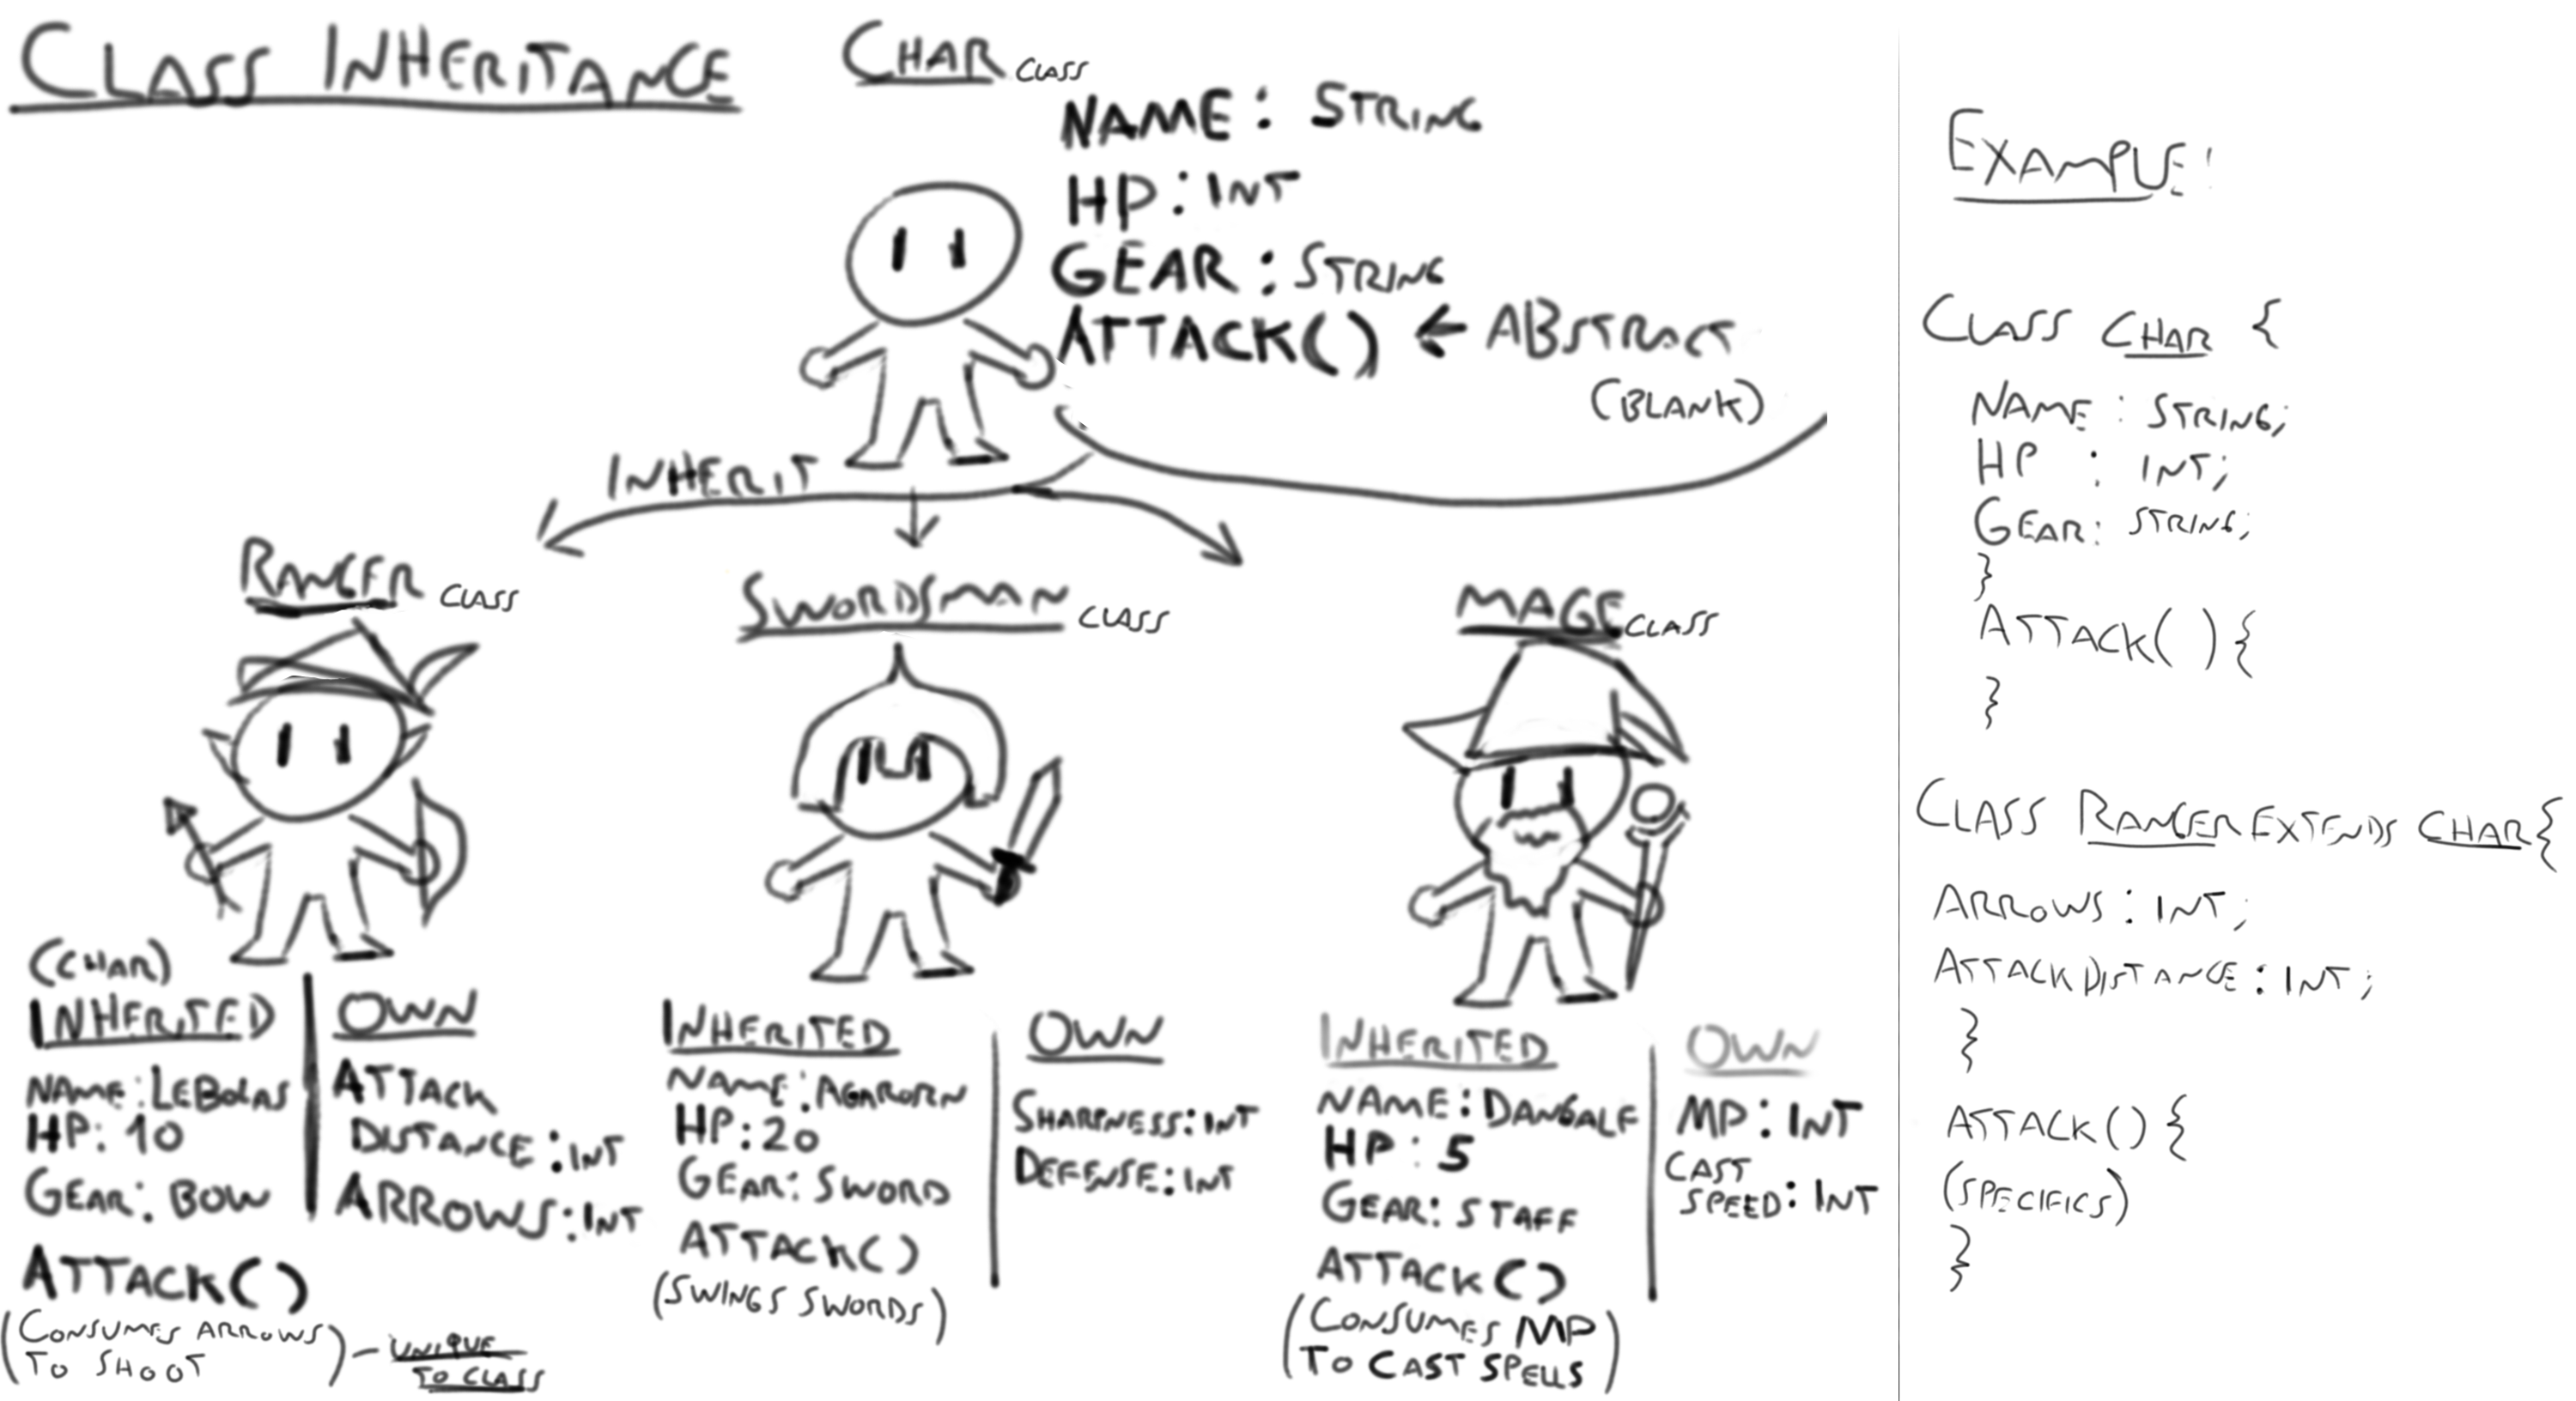 CLASS INHERITANCE
CHAR CLASS
NAME: STRING
HP: INT
GEAR: STRING
ATTACK() ← ABSTRACT
(BLANK)
INHERIT
RANGER CLASS
(CHAR)
INHERITED
NAME: LEBOLAS
HP: 10
GEAR: BOW
ATTACK()
(CONSUMES ARROWS
TO SHOOT) - UNIQUE
TO CLASS
OWN
ATTACK
DISTANCE: INT
ARROWS: INT
SWORDSMAN CLASS
INHERITED
NAME: AGARORN
HP: 20
GEAR: SWORD
ATTACK()
(SWINGS SWORDS)
OWN
SHARPNESS: INT
DEFENSE: INT
MAGE CLASS
INHERITED
NAME: DANGALF
HP: 5
GEAR: STAFF
ATTACK()
(CONSUMES MP
TO CAST SPELLS)
OWN
MP: INT
CAST
SPEED: INT
EXAMPLE:
CLASS CHAR {
NAME: STRING;
HP : INT;
GEAR: STRING;
}
ATTACK( ){
}
CLASS RANGER EXTENDS CHAR{
ARROWS: INT;
ATTACKDISTANCE: INT;
}
ATTACK() {
(SPECIFICS)
}